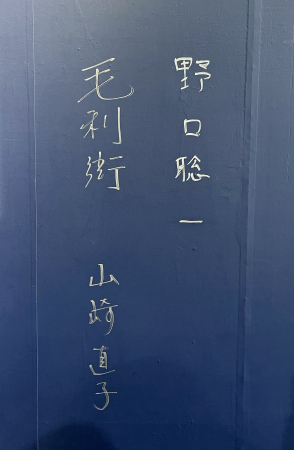 野口聡一
毛利衛
山崎直子